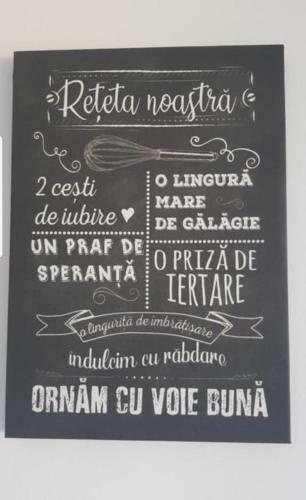 Rețeta noastră
2 cești
de iubire
O LINGURĂ
MARE
DE GĂLĂGIE
UN PRAF DE
SPERANȚĂ
O PRIZĂ DE
IERTARE
o linguriță de îmbrățișare
îndulcim cu răbdare
ORNĂM CU VOIE BUNĂ